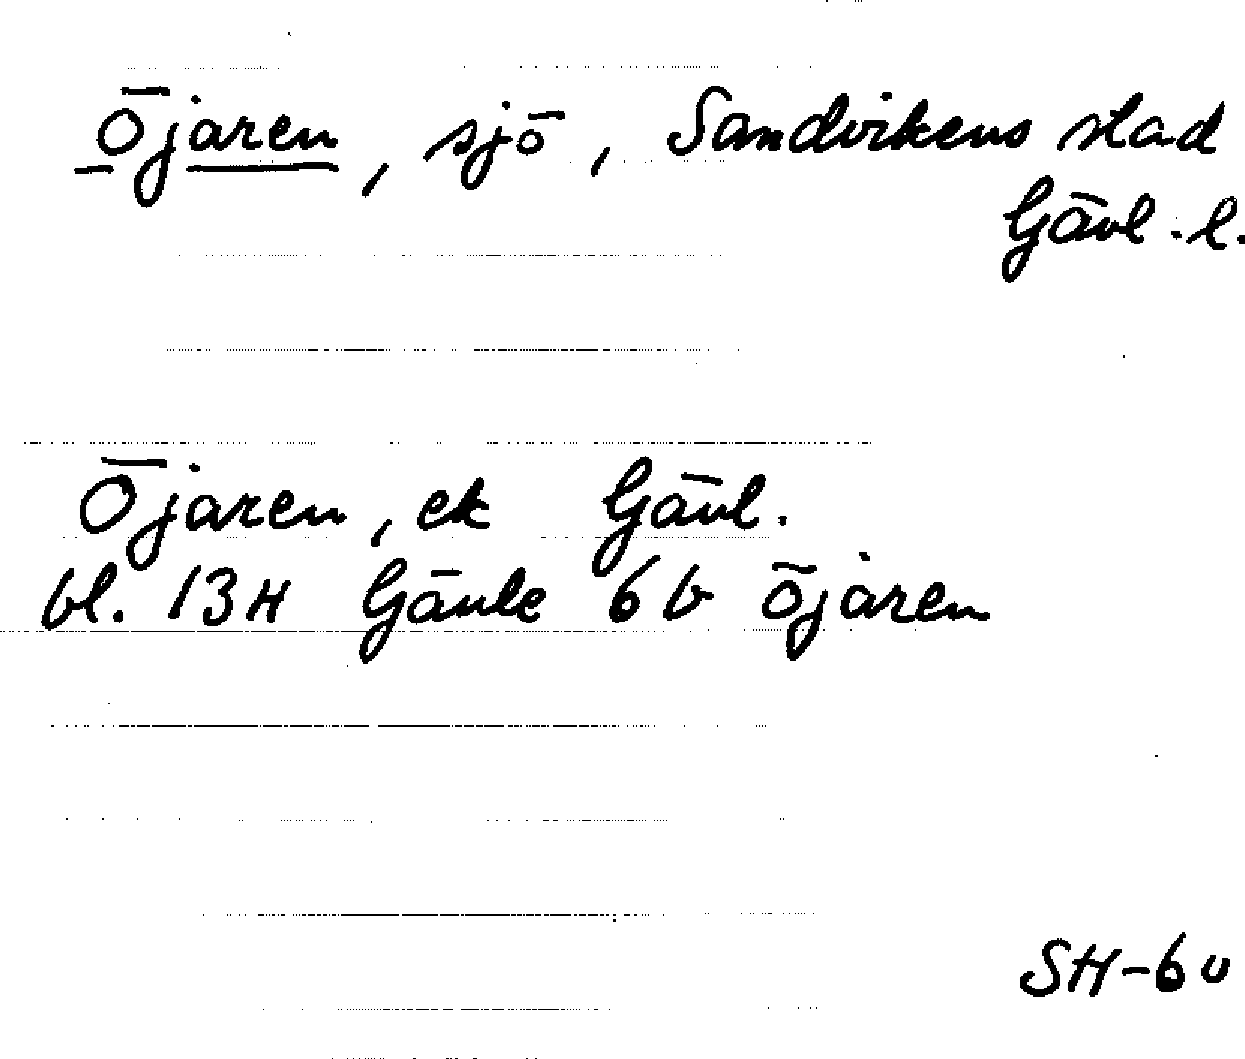 Öjaren, sjö, Sandvikens stad
Gävl. l.
Öjaren, ek Gävl.
bl. 13H Gävle 6b Öjaren
SH-60